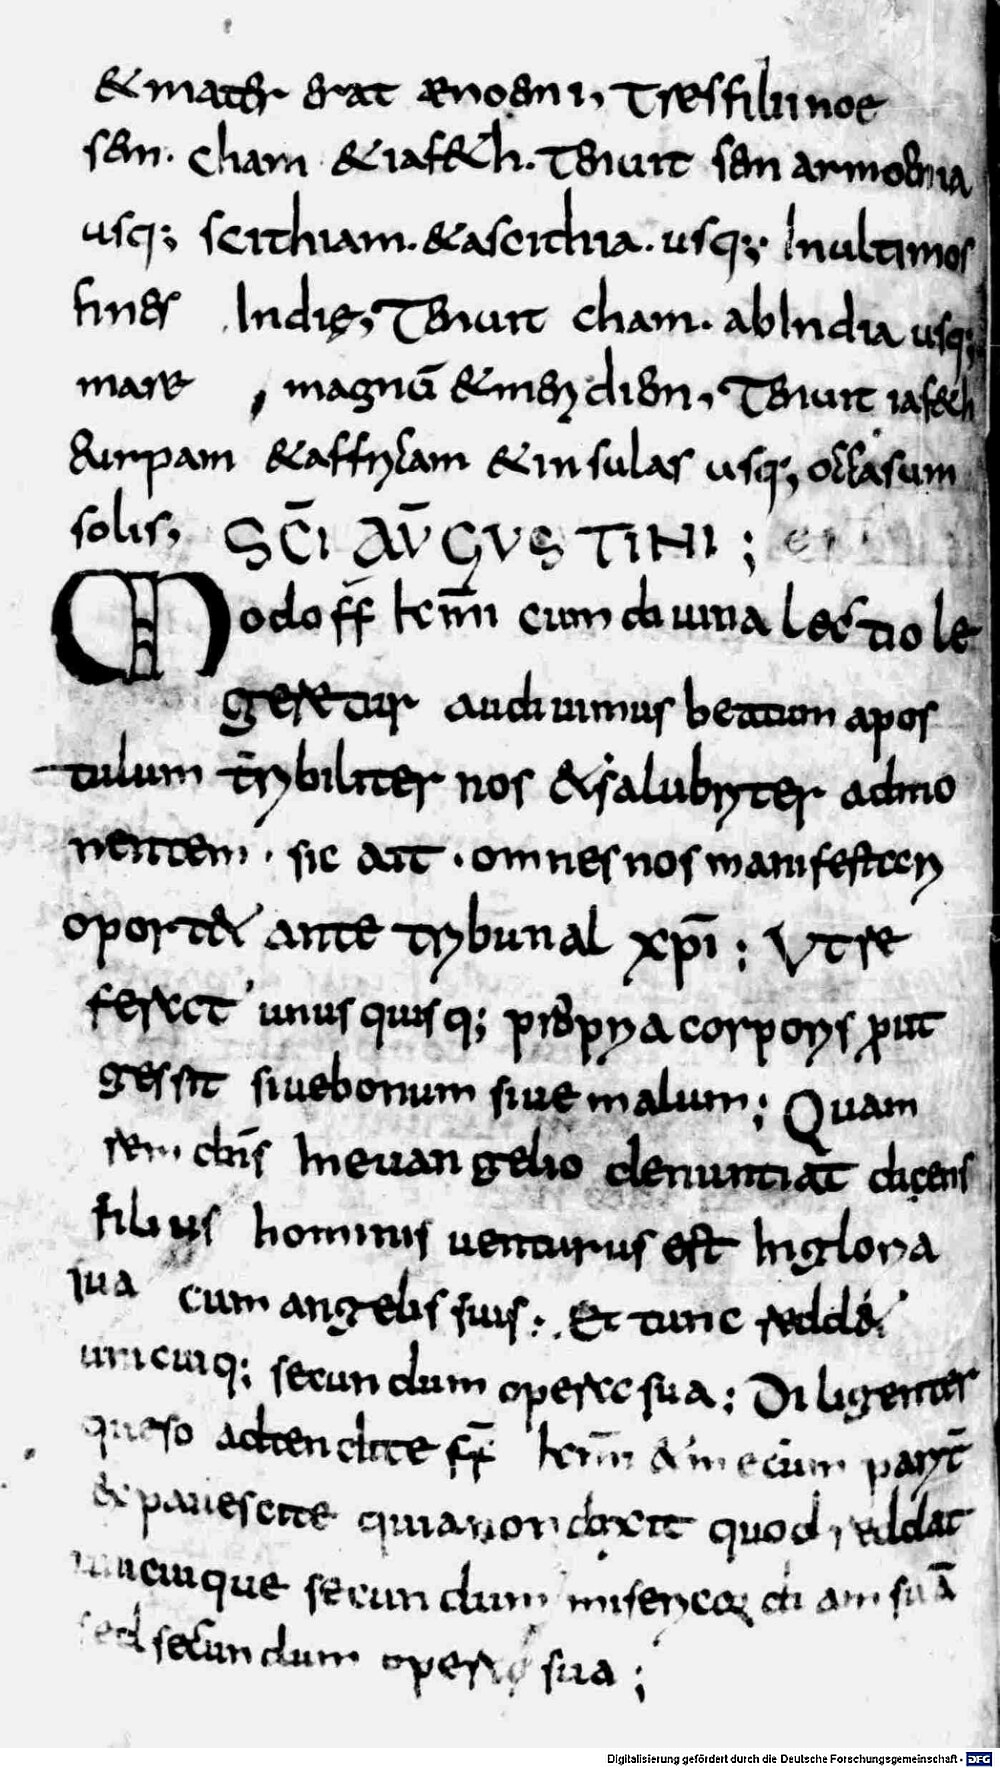 & mater erat aenoem, Tres filii noe
sem. cham & iafeth. Tenuit sem armoenia
usq; scithiam. & a scithia. usq; In ultimos
fines Indię, Tenuit cham. ab India usq;
mare magnū & meridien, Tenuit iafeth
eurpam & affricam & insulas usq; occasum
solis, SC̄I AV̄GVSTINI;
Modo ff̄ km̄i cum diuina lectio le
geretur audiuimus beatum apos
tulum terribiliter nos & salubriter admo
nentem. sic ait. omnes nos manifestari
oportet ante tribunal xp̄i; Vt re
ferat unus quisq; propria corporis ꝓut
gessit siue bonum siue malum; Quam
rem dn̄s In euangelio denuntiat dicens
filius hominis uenturus est In gloria
sua cum angelis suis; Et tunc reddet
unicuiq; secundum opera sua; Diligenter
queso adtendite ff̄ km̄i & mecum parit̄
& pauescite quia non dixit quod reddat
unicuique secundum misericordiam suā
sed secundum opera sua;
Digitalisierung gefördert durch die Deutsche Forschungsgemeinschaft - DFG